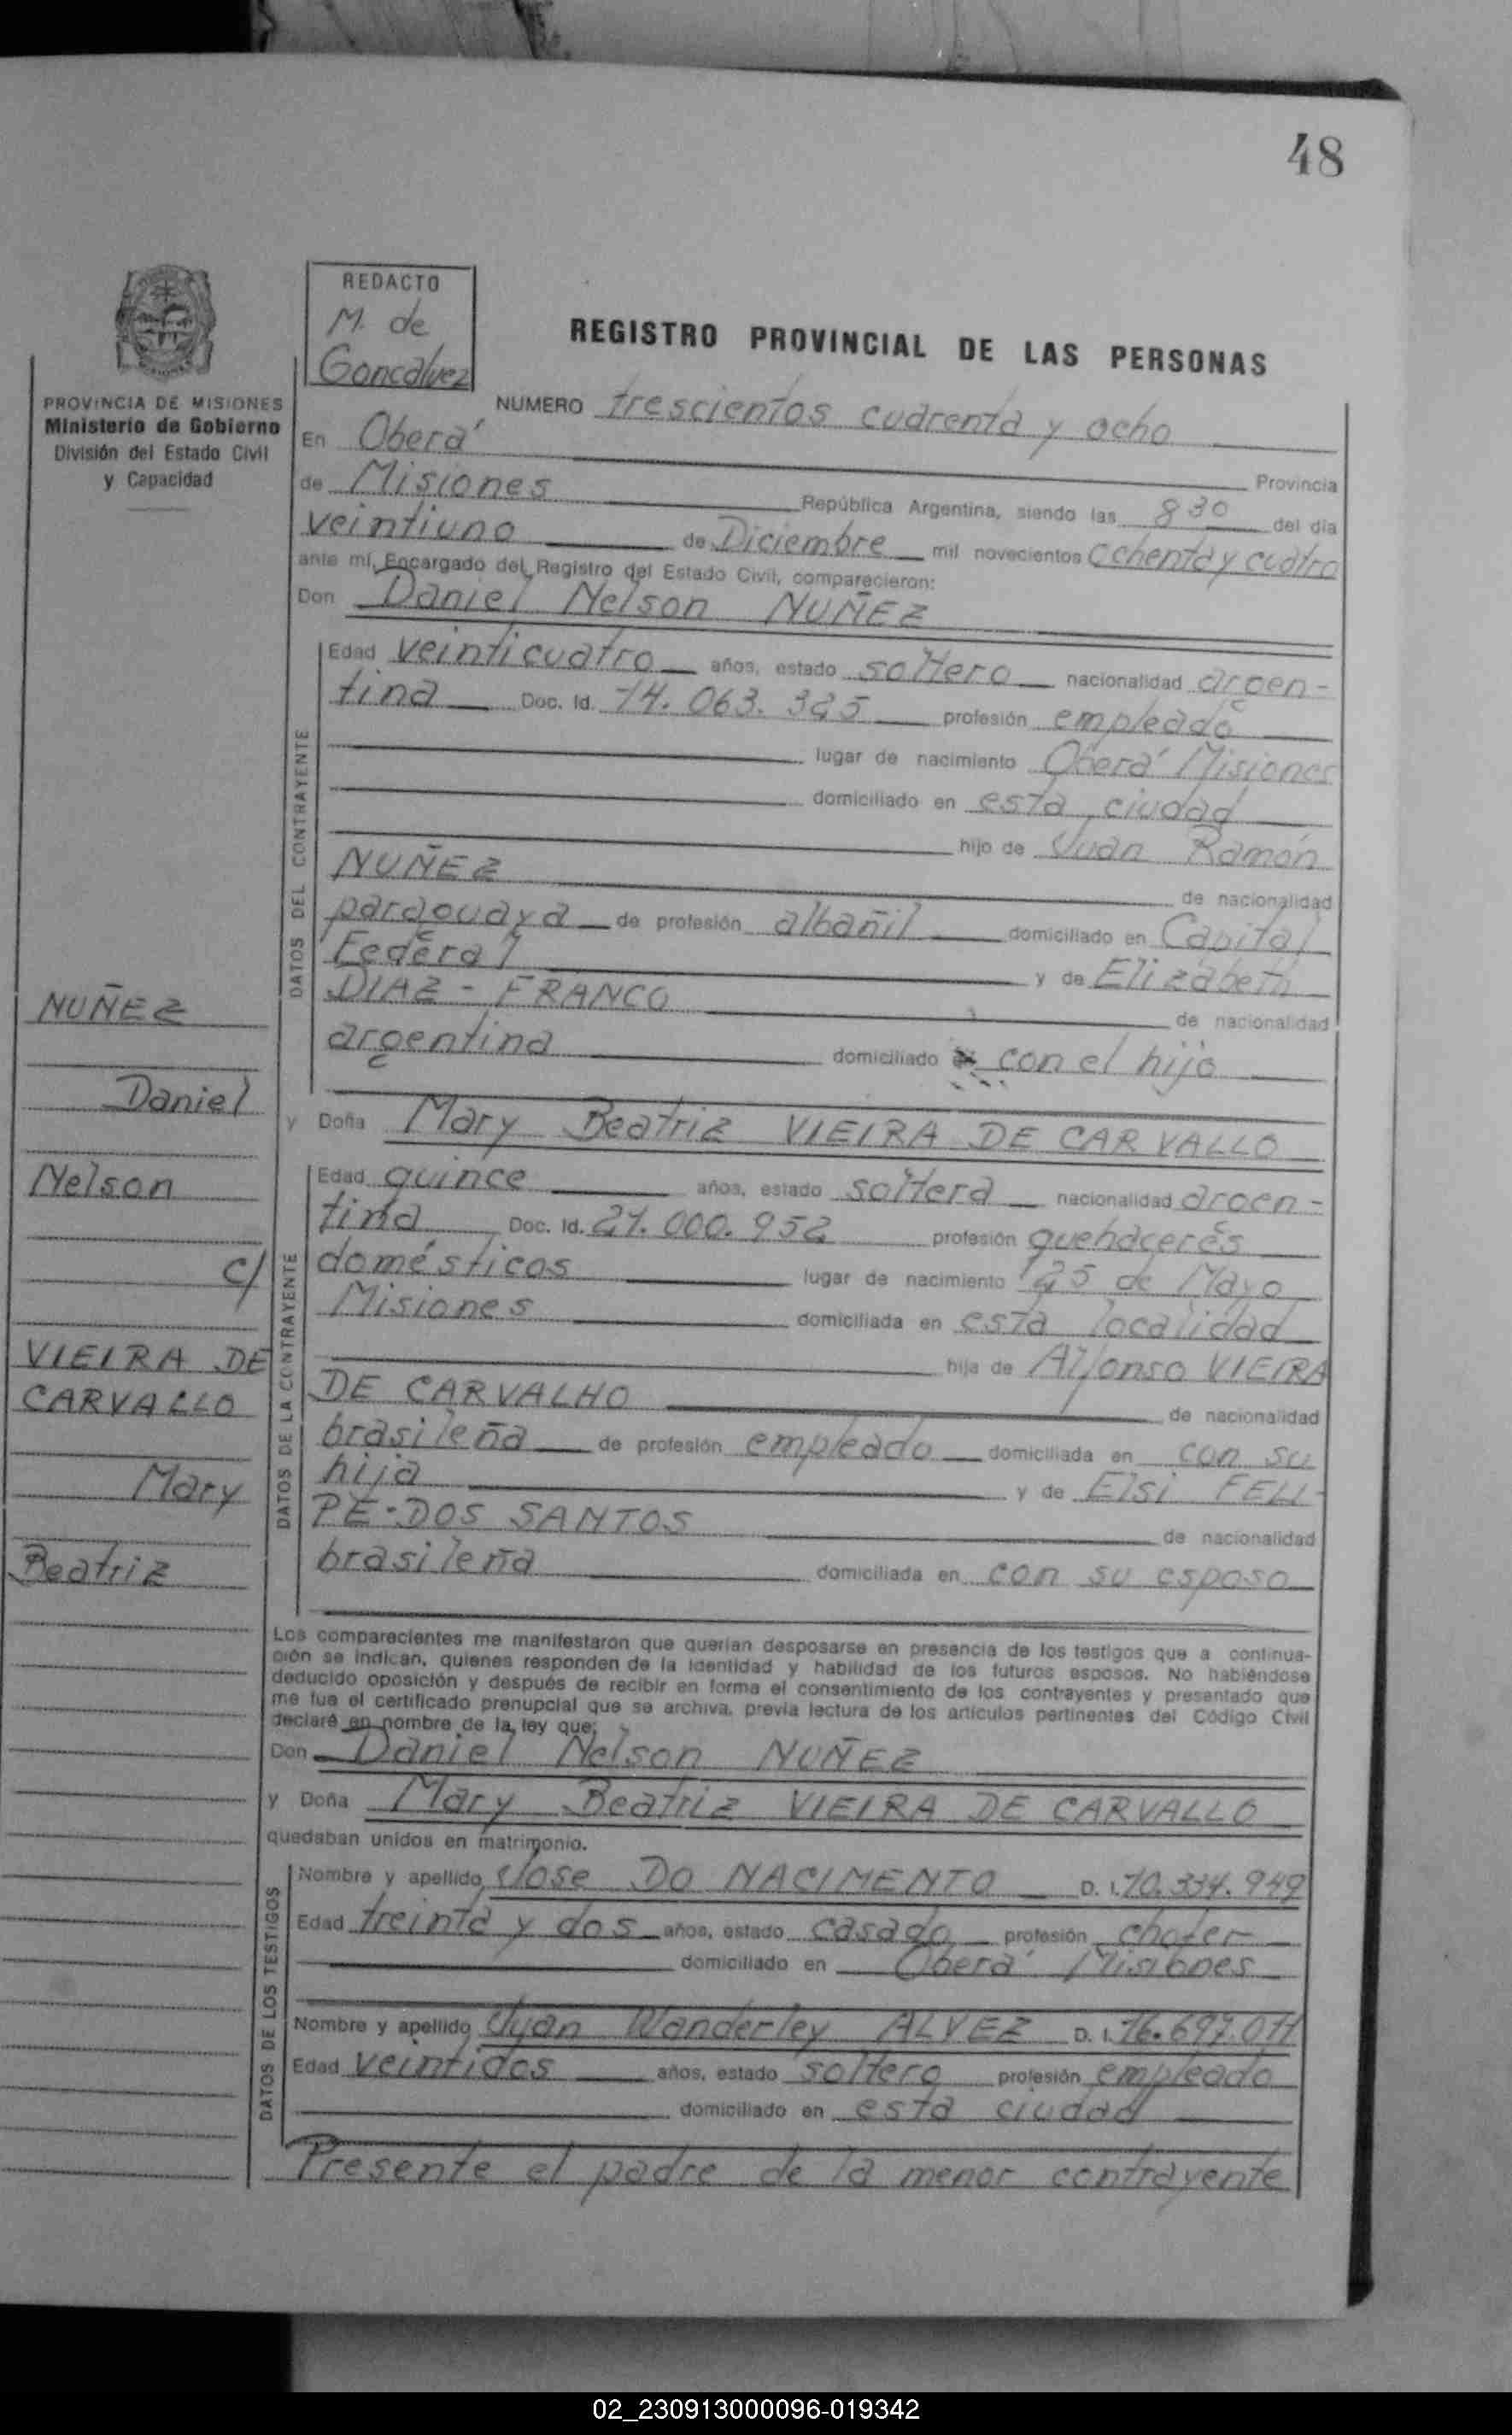 48
REDACTO
M. de
Goncalvez
REGISTRO PROVINCIAL DE LAS PERSONAS
PROVINCIA DE MISIONES
Ministerio de Gobierno
División del Estado Civil
y Capacidad
NUMERO trescientos cuarenta y ocho
En Oberá Provincia
de Misiones República Argentina, siendo las 8 30 del día
veintiuno de Diciembre mil novecientos ochenta y cuatro
ante mí, Encargado del Registro del Estado Civil, comparecieron:
Don Daniel Nelson NUÑEZ
DATOS DEL CONTRAYENTE
Edad veinticuatro años, estado soltero nacionalidad argen-
tina Doc. Id. 14.063.325 profesión empleado
lugar de nacimiento Oberá Misiones
domiciliado en esta ciudad
hijo de Juan Ramón
NUÑEZ de nacionalidad
paraguaya de profesión albañil domiciliado en Capital
Federal y de Elizabeth
DIAZ - FRANCO de nacionalidad
argentina domiciliado con el hijo
y Doña Mary Beatriz VIEIRA DE CARVALLO
DATOS DE LA CONTRAYENTE
Edad quince años, estado soltera nacionalidad argen-
tina Doc. Id. 21.000.952 profesión quehaceres
domésticos lugar de nacimiento 25 de Mayo
Misiones domiciliada en esta localidad
hija de Alfonso VIEIRA
DE CARVALHO de nacionalidad
brasileña de profesión empleado domiciliada en con su
hija y de Elsi FELI-
PE-DOS SANTOS de nacionalidad
brasileña domiciliada en con su esposo
NUÑEZ
Daniel
Nelson
c/
VIEIRA DE
CARVALLO
Mary
Beatriz
Los comparecientes me manifestaron que querían desposarse en presencia de los testigos que a continua-
ción se indican, quienes responden de la identidad y habilidad de los futuros esposos. No habiéndose
deducido oposición y después de recibir en forma el consentimiento de los contrayentes y presentado que
me fue el certificado prenupcial que se archiva, previa lectura de los artículos pertinentes del Código Civil
declaré en nombre de la ley que;
Don Daniel Nelson NUÑEZ
y Doña Mary Beatriz VIEIRA DE CARVALLO
quedaban unidos en matrimonio.
DATOS DE LOS TESTIGOS
Nombre y apellido Jose DO NACIMENTO D. I. 10.334.949
Edad treinta y dos años, estado casado profesión chofer
domiciliado en Oberá Misiones
Nombre y apellido Juan Wanderley ALVEZ D. I. 16.697.011
Edad veintidos años, estado soltero profesión empleado
domiciliado en esta ciudad
Presente el padre de la menor contrayente
02_230913000096-019342